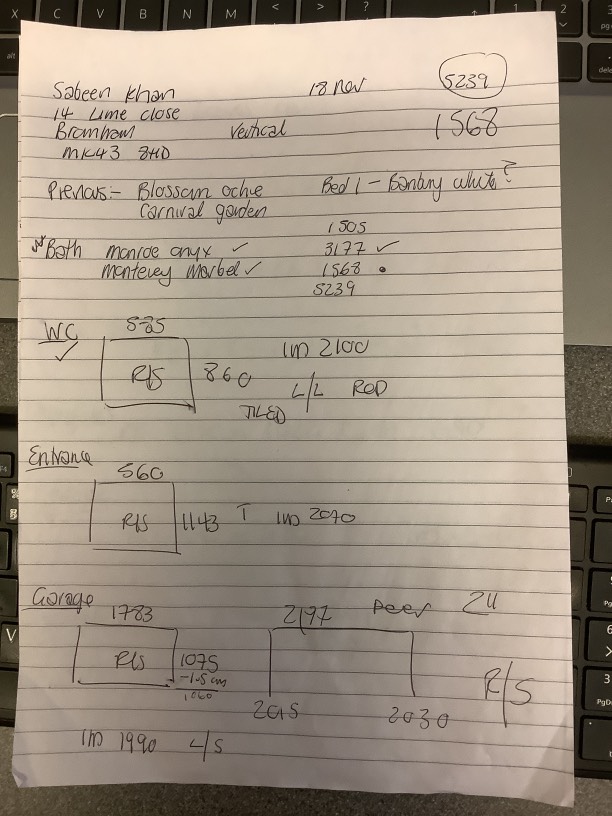 Sabeen Khan 18 Nov 5239
14 Lime close 1568
Bromham Vertical
MK43 8HD
Previous:- Blossom ochre Bed 1 - Banbury white?
Carnival garden
1505
Bath monroe onyx ✓ 3177 ✓
monterey marbel ✓ 1568 •
5239
WC ✓
585
R/S 860 IM 2100
L/L ROD
TILED
Entrance
560
R/S 1143 T IM 2070
Garage
1783 2197 Peer 24
R/S 1075
-1.5cm
1060
R/S
2015 2030
IM 1990 L/S